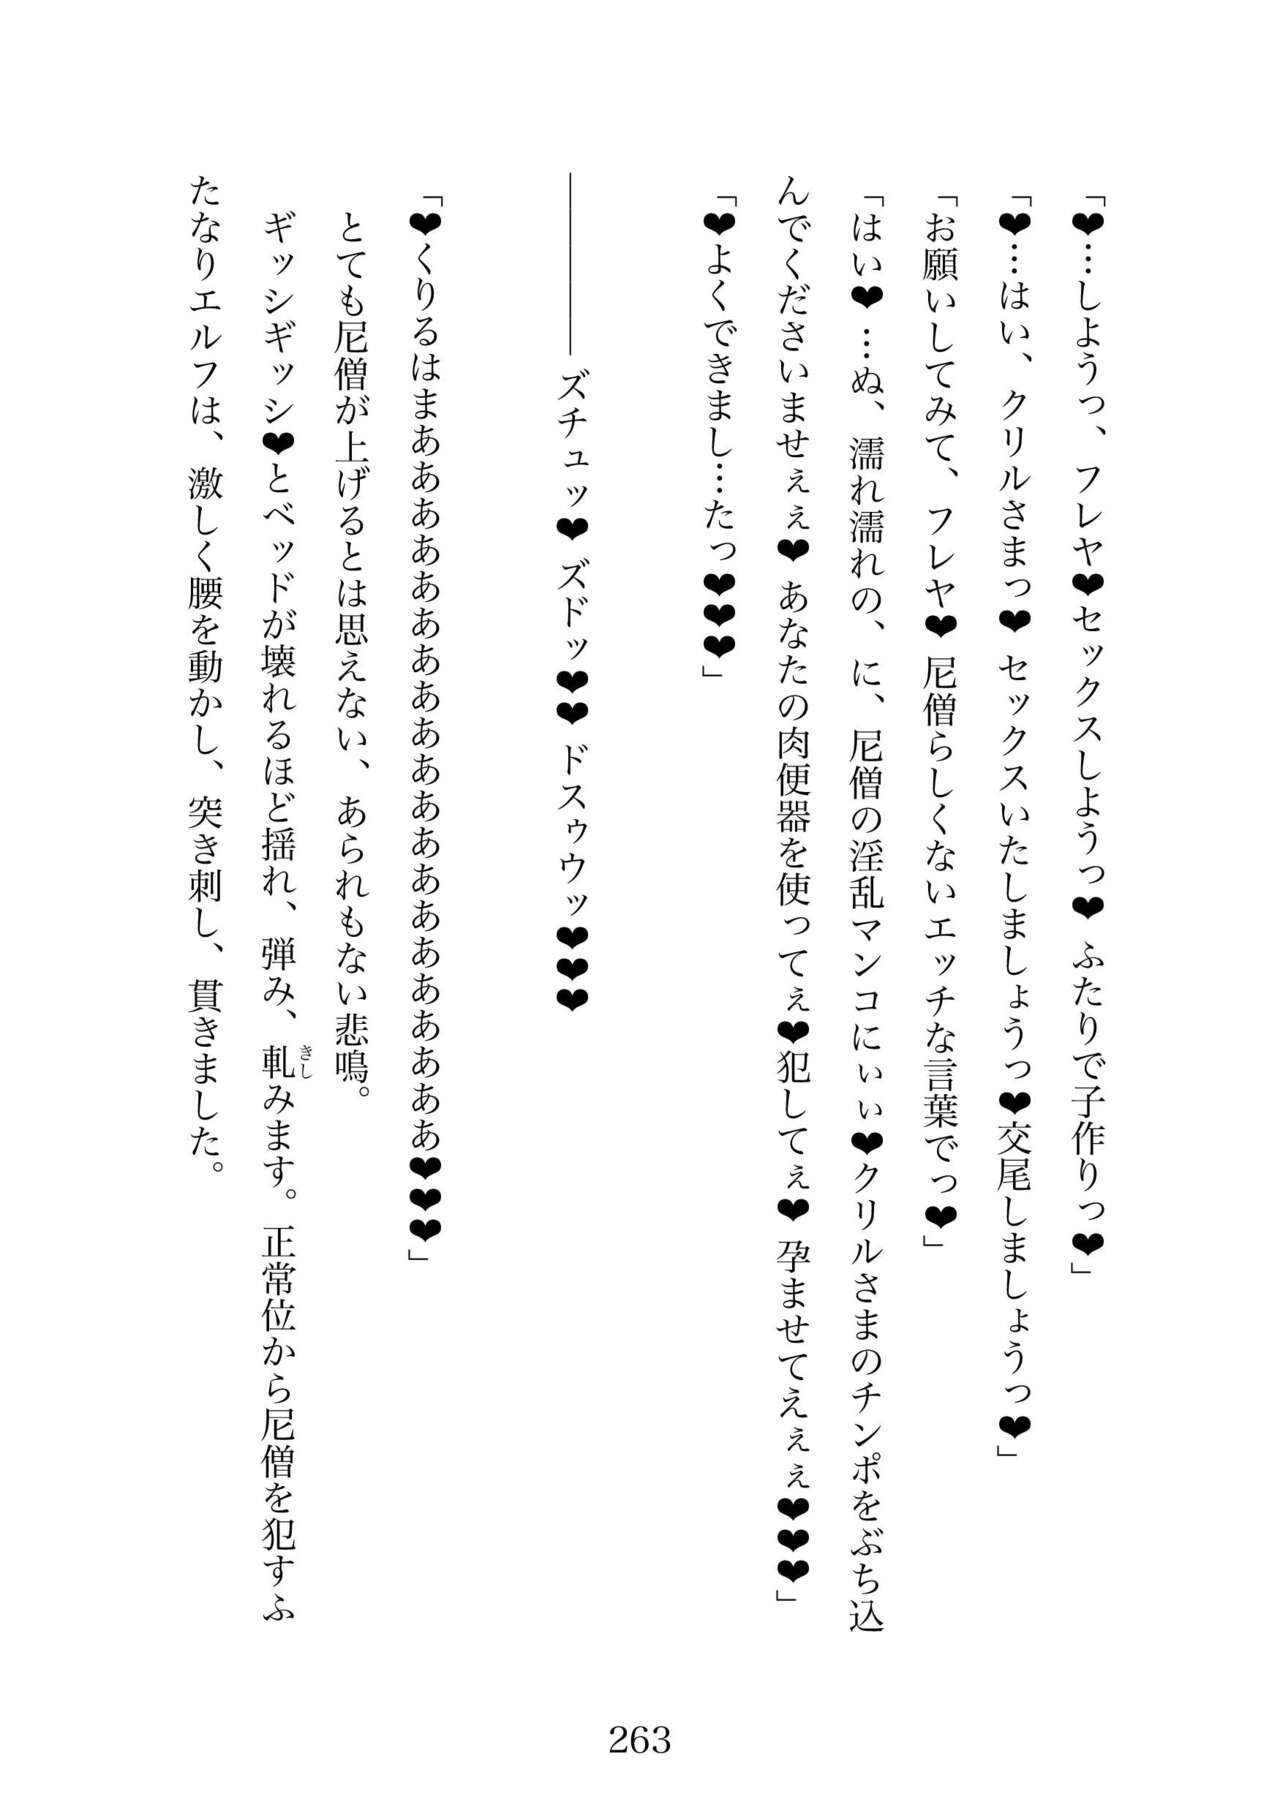 「❤…しようっ、フレヤ❤セックスしようっ❤ ふたりで子作りっ❤」
「❤…はい、クリルさまっ❤ セックスいたしましょうっ❤交尾しましょうっ❤」
「お願いしてみて、フレヤ❤ 尼僧らしくないエッチな言葉でっ❤」
「はい❤…ぬ、濡れ濡れの、に、尼僧の淫乱マンコにぃぃ❤クリルさまのチンポをぶち込
んでくださいませぇぇ❤ あなたの肉便器を使ってぇ❤犯してぇ❤ 孕ませてえぇぇ❤❤❤」
「❤よくできまし…たっ❤❤❤」
―――――ズチュッ❤ ズドッ❤❤ ドスゥウッ❤❤❤
「❤くりるはまああああああああああああああああああああ❤❤❤」
とても尼僧が上げるとは思えない、あられもない悲鳴。
ギッシギッシ❤とベッドが壊れるほど揺れ、弾み、軋みます。正常位から尼僧を犯すふ
きし
たなりエルフは、激しく腰を動かし、突き刺し、貫きました。
263